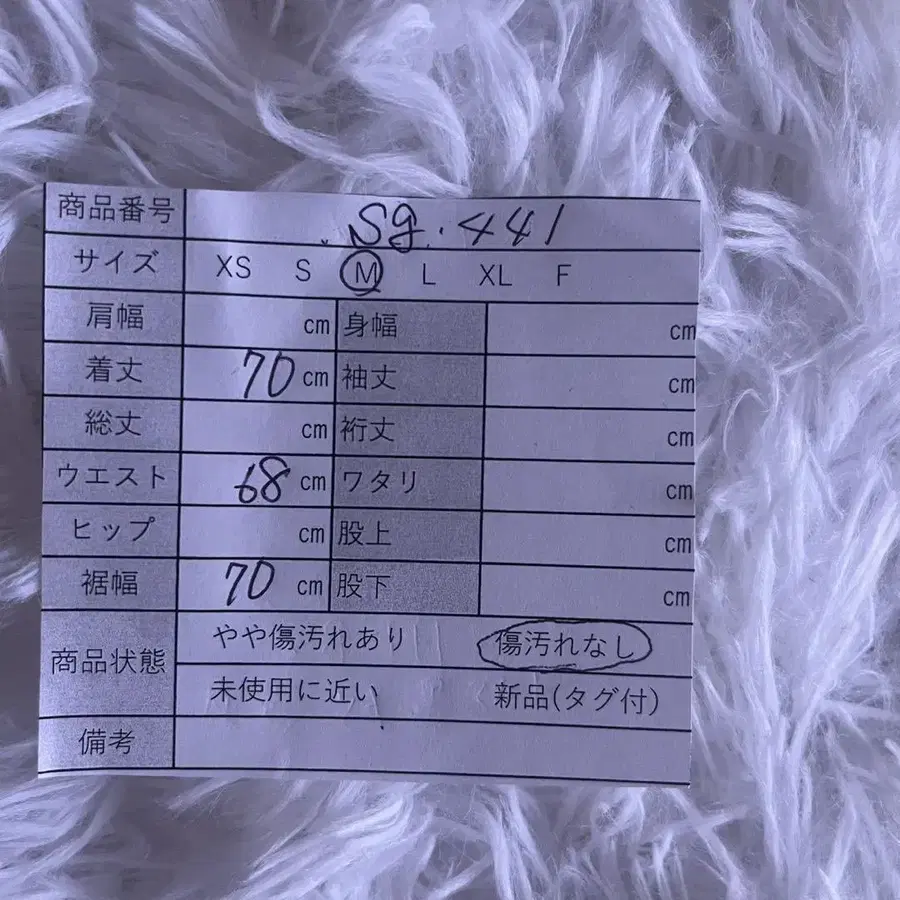 商品番号 Sg.441
サイズ XS S M L XL F
肩幅 cm 身幅 cm
着丈 70 cm 袖丈 cm
総丈 cm 裄丈 cm
ウエスト 68 cm ワタリ cm
ヒップ cm 股上 cm
裾幅 70 cm 股下 cm
商品状態 やや傷汚れあり 傷汚れなし
未使用に近い 新品(タグ付)
備考